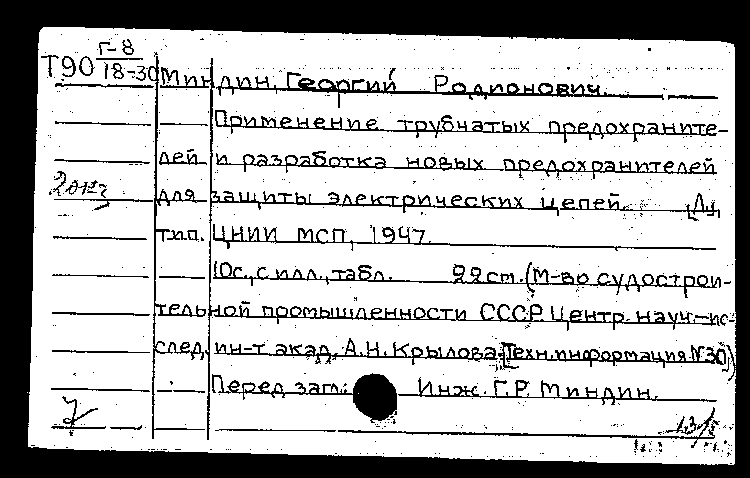 Г-8
Т90 18-30
Миндин, Георгий Родионович.
Применение трубчатых предохраните-
лей и разработка новых предохранителей
для защиты электрических цепей. [Л],
тип. ЦНИИ МСП, 1947.
10с., с илл., табл. 22 см. (М-во судострои-
тельной промышленности СССР. Центр. науч.-ис-
след. ин-т акад. А.Н. Крылова. [Техн. информация №30)
Перед загл.: Инж. Г.Р. Миндин.